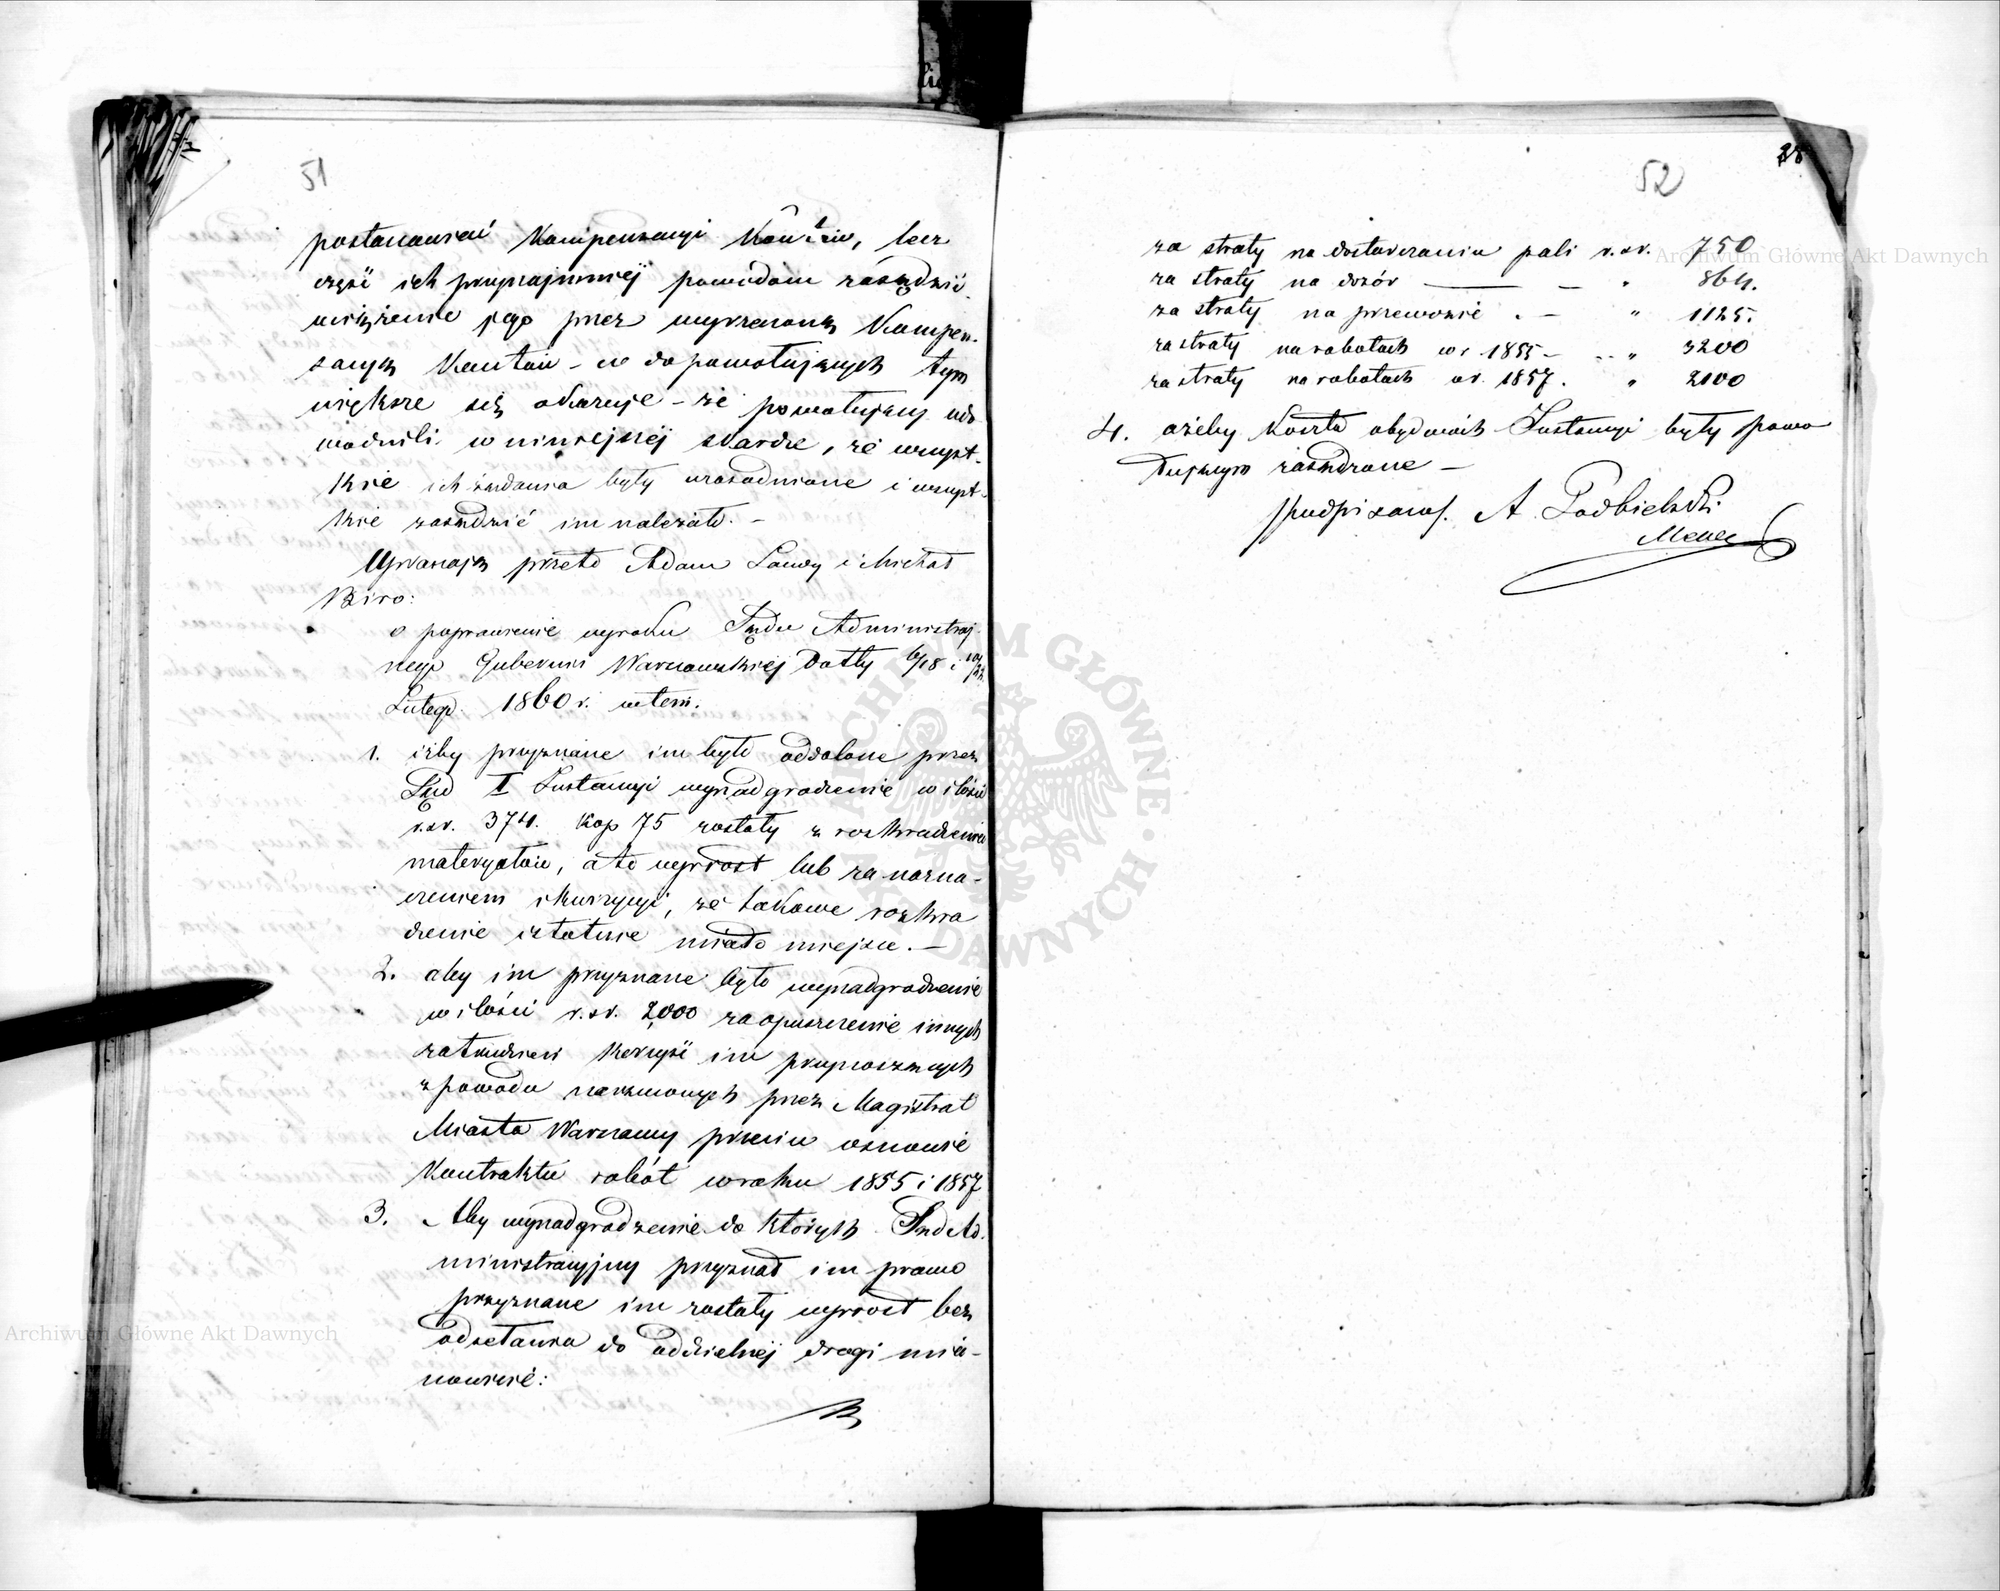 51
postanowień Kompensacyi Kosztów, lecz
część ich przynajmniej powodom zasądzić
uciążenie jego przez wyrzeczoną Kompen-
sacyą Kosztów – w dopowołujących tym
większe się okazuje – że powołujący udo
wodnili w niniejszej skardze, że wszyst-
kie ich żądania były uzasadnione i wszyst-
kie zasądzić im należało. –
Upraszają przeto Adam Lawy i Michał
Biro:
o poprawienie wyroku Sądu Administracyj
nego Gubernii Warszawskiej Datty 6/18 i 10/22
Lutego 1860 r. w tem.
1. iżby przyznane im było oddalone przez
Sąd I Instancyi wynadgrodzenie w ilości
r. sr. 374. kop 75 zostały z rozkradzenia
materyałów, a to wyrost lub za nazna-
czeniem inkwizycyi, że takowe rozkra
dzenie istotnie miało miejsce. –
2. aby im przyznane było wynadgrodzenie
w ilości r. sr. 2000 za opuszczenie innych
zatrudnień korzyść im przynoszących
z powodu narzuconych przez Magistrat
Miasta Warszawy przeciw osnowie
Kontraktu robót w roku 1855 i 1857
3. Aby wynadgrodzenie do których Sąd Ad.
ministracyjny przyznał im prawo
przyznane im zostały wyrost bez
odsełania do oddzielnej drogi mia-
nowicie:
52
28
za straty na dostarczaniu pali r. sr. 750
za straty na dozór — – " 864.
za straty na przewozie . – " 1125.
za straty na robotach w r. 1855 – .. " 3200
za straty na robotach w r. 1857. " 2100
4. ażeby Koszta obydwóch Instancyi były powo
łującym zasądzone –
/podpisano/. A. Podbielski
Mece
Archiwum Główne Akt Dawnych
Archiwum Główne Akt Dawnych
ARCHIWUM GŁÓWNE AKT DAWNYCH